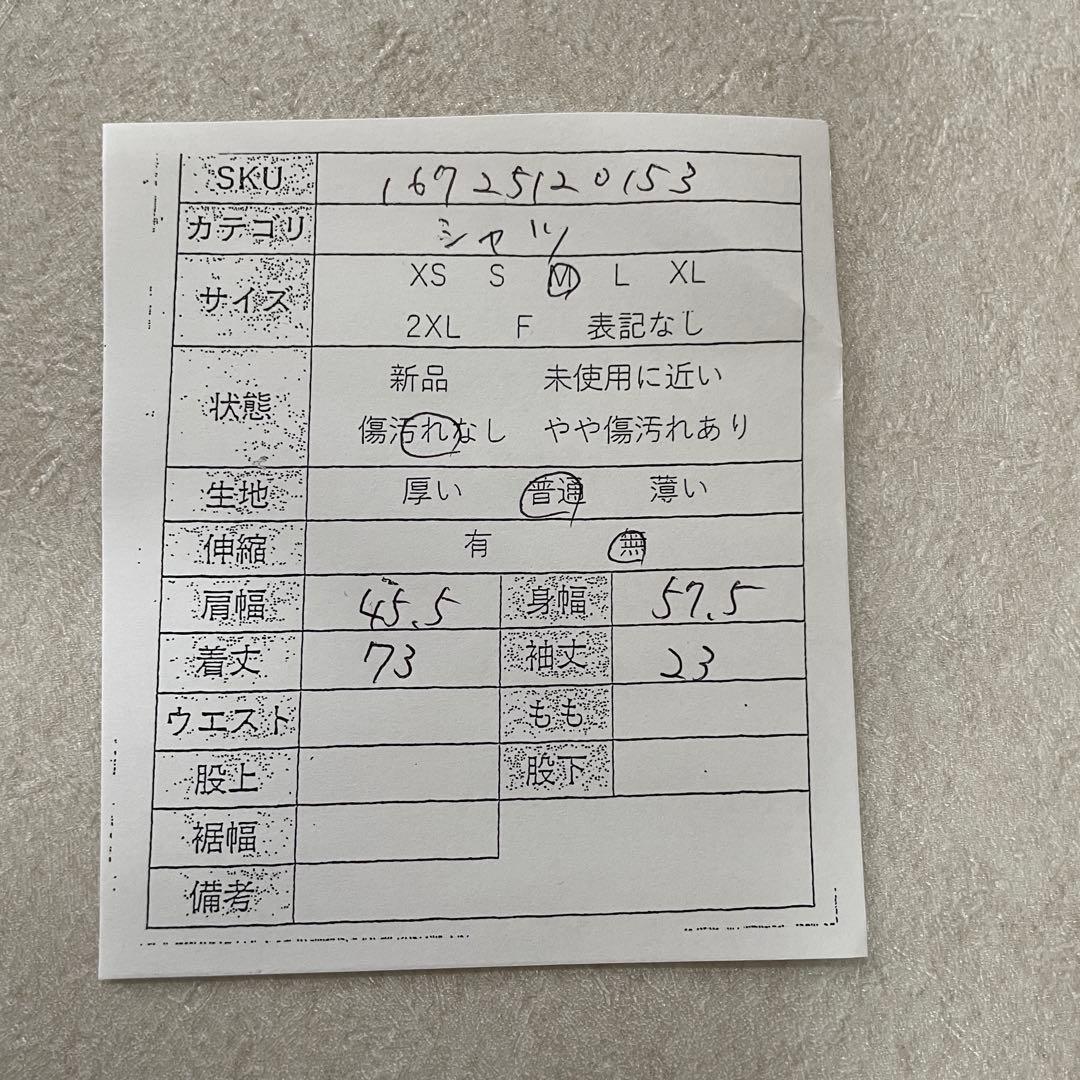 SKU 16725120153
カテゴリ シャツ
サイズ XS S M L XL
2XL F 表記なし
状態 新品 未使用に近い
傷汚れなし やや傷汚れあり
生地 厚い 普通 薄い
伸縮 有 無
肩幅 45.5 身幅 57.5
着丈 73 袖丈 23
ウエスト もも
股上 股下
裾幅
備考